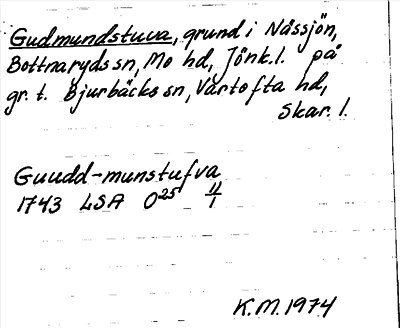 Gudmundstuva, grund i Nässjön,
Bottnaryds sn, Mo hd, Jönk.l. på
gr. t. Bjurbäcks sn, Vartofta hd,
Skar. l.
Guudd-munstufva
1743 LSA O25 11/1
K.M. 1974